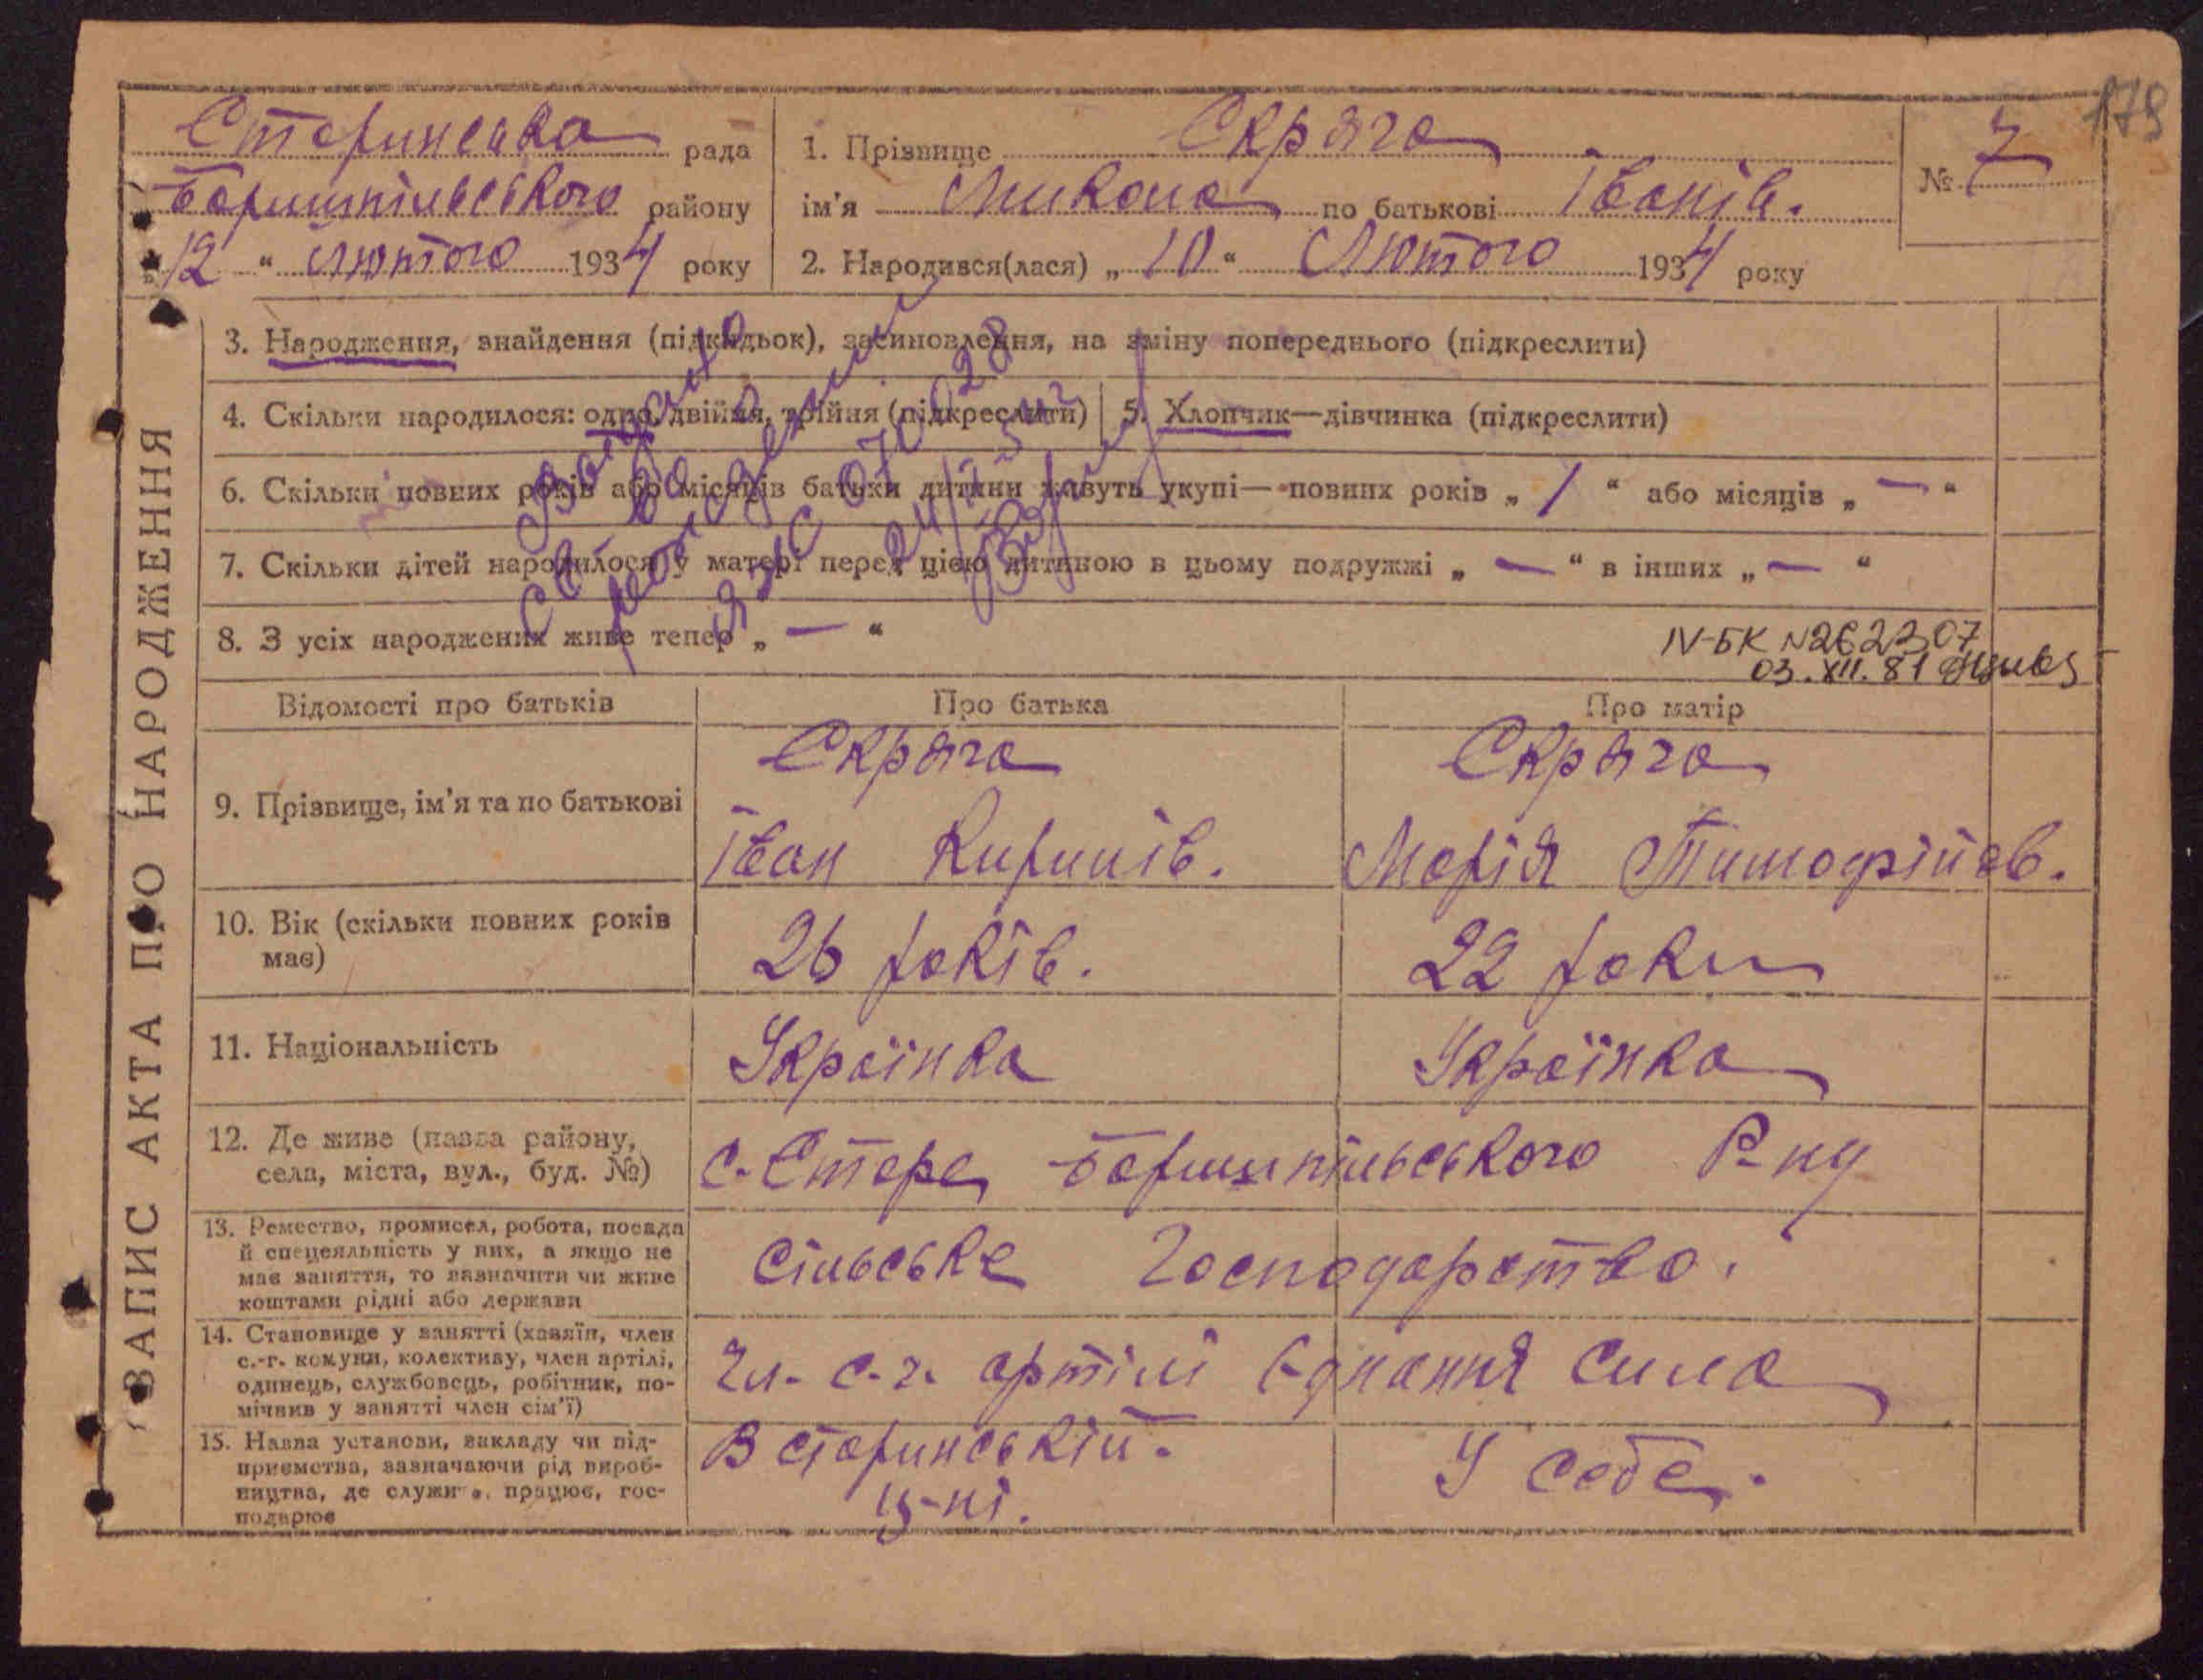 179
Старинська рада
Баришпільського району
"12" лютого 1934 року
1. Прізвище Скряга
ім'я Микола по батькові Іванів.
2. Народився(лася) „10“ Лютого 1934 року
№ 7
ЗАПИС АКТА ПРО НАРОДЖЕННЯ
3. Народження, знайдення (підкидьок), засиновлення, на зміну попереднього (підкреслити)
4. Скільки народилося: одно, двійня, трійня (підкреслити)
5. Хлопчик—дівчинка (підкреслити)
6. Скільки повних років або місяців батьки дитини живуть укупі—повних років „ 1 “ або місяців „ — “
7. Скільки дітей народилося у матері перед цією дитиною в цьому подружжі „ — “ в інших „ — “
8. З усіх народжених живе тепер „ — “
Выдано
св. во
24/
IV-БК N262207
03.XII.81
Відомості про батьків Про батька Про матір
9. Прізвище, ім'я та по батькові
Скряга
Іван Кирилів.
Скряга
Марія Тимофійов.
10. Вік (скільки повних років
має)
26 років.
22 роки
11. Національність
Українка
Українка
12. Де живе (назва району,
села, міста, вул., буд. №)
с. Старе Баришпільського Р-ну
13. Ремество, промисел, робота, посада
й спецеяльність у них, а якщо не
має заняття, то зазначити чи живе
коштами рідні або держави
Сільське Господарство.
14. Становище у занятті (хазяїн, член
с.-г. комуни, колективу, член артілі,
одинець, службовець, робітник, по-
мічник у занятті член сім'ї)
Чл. с.г. артілі Єднання Сила
15. Назва установи, закладу чи під-
приємства, зазначаючи рід вироб-
ництва, де служить, працює, гос-
подарює
В старинській
ц-ні.
У себе.